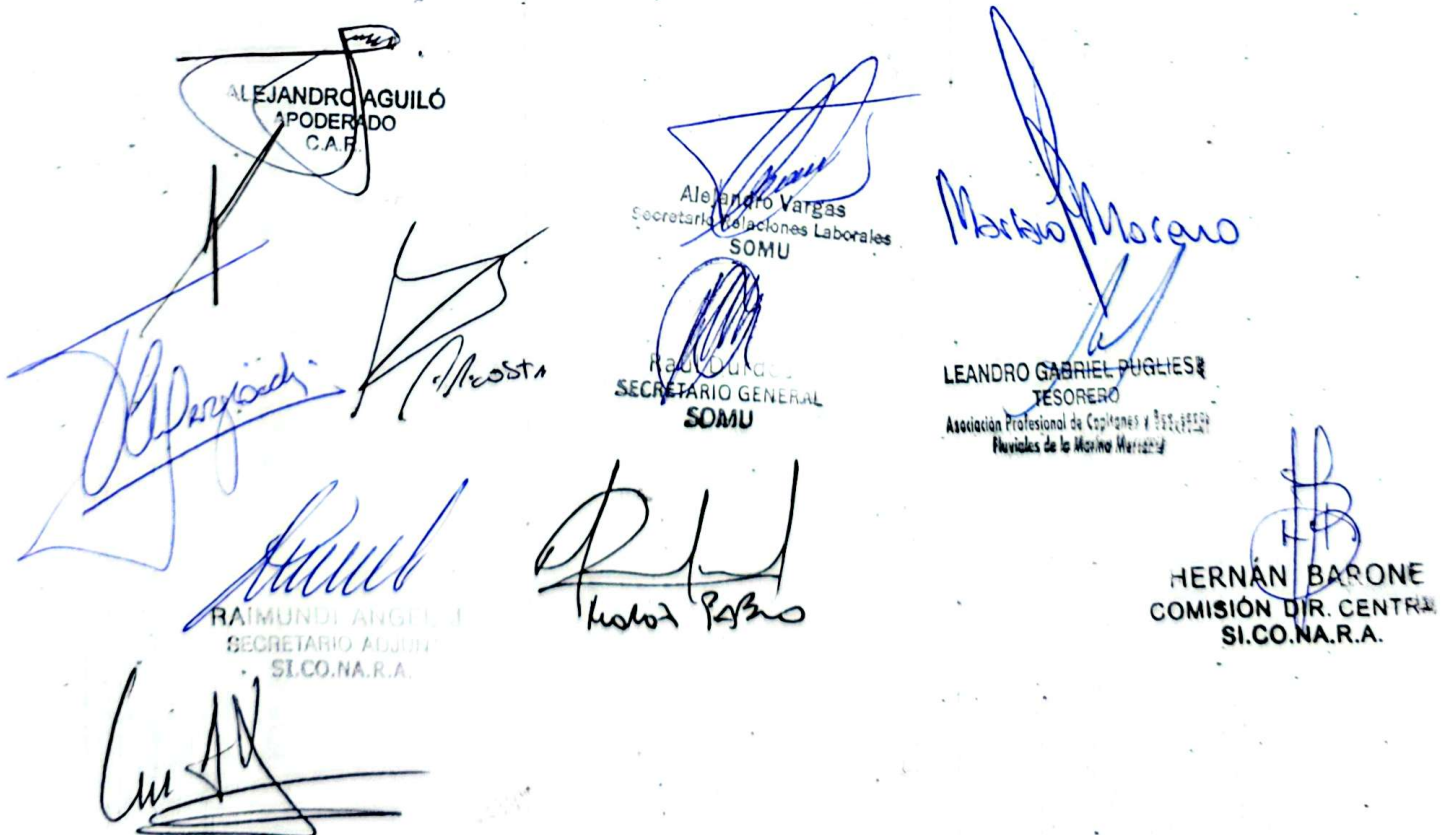 ALEJANDRO AGUILÓ
APODERADO
C.A.R.
Alejandro Vargas
Secretario Relaciones Laborales
SOMU
Mariano Moreno
ACOSTA
Raúl
SECRETARIO GENERAL
SOMU
LEANDRO GABRIEL PUGLIESE
TESORERO
Asociación Profesional de Capitanes y
Fluviales de la Marina Mercante
RAIMUNDI ANGEL J
SECRETARIO ADJUN
SI.CO.NA.R.A.
PABLO
HERNÁN BARONE
COMISIÓN DIR. CENTRAL
SI.CO.NA.R.A.